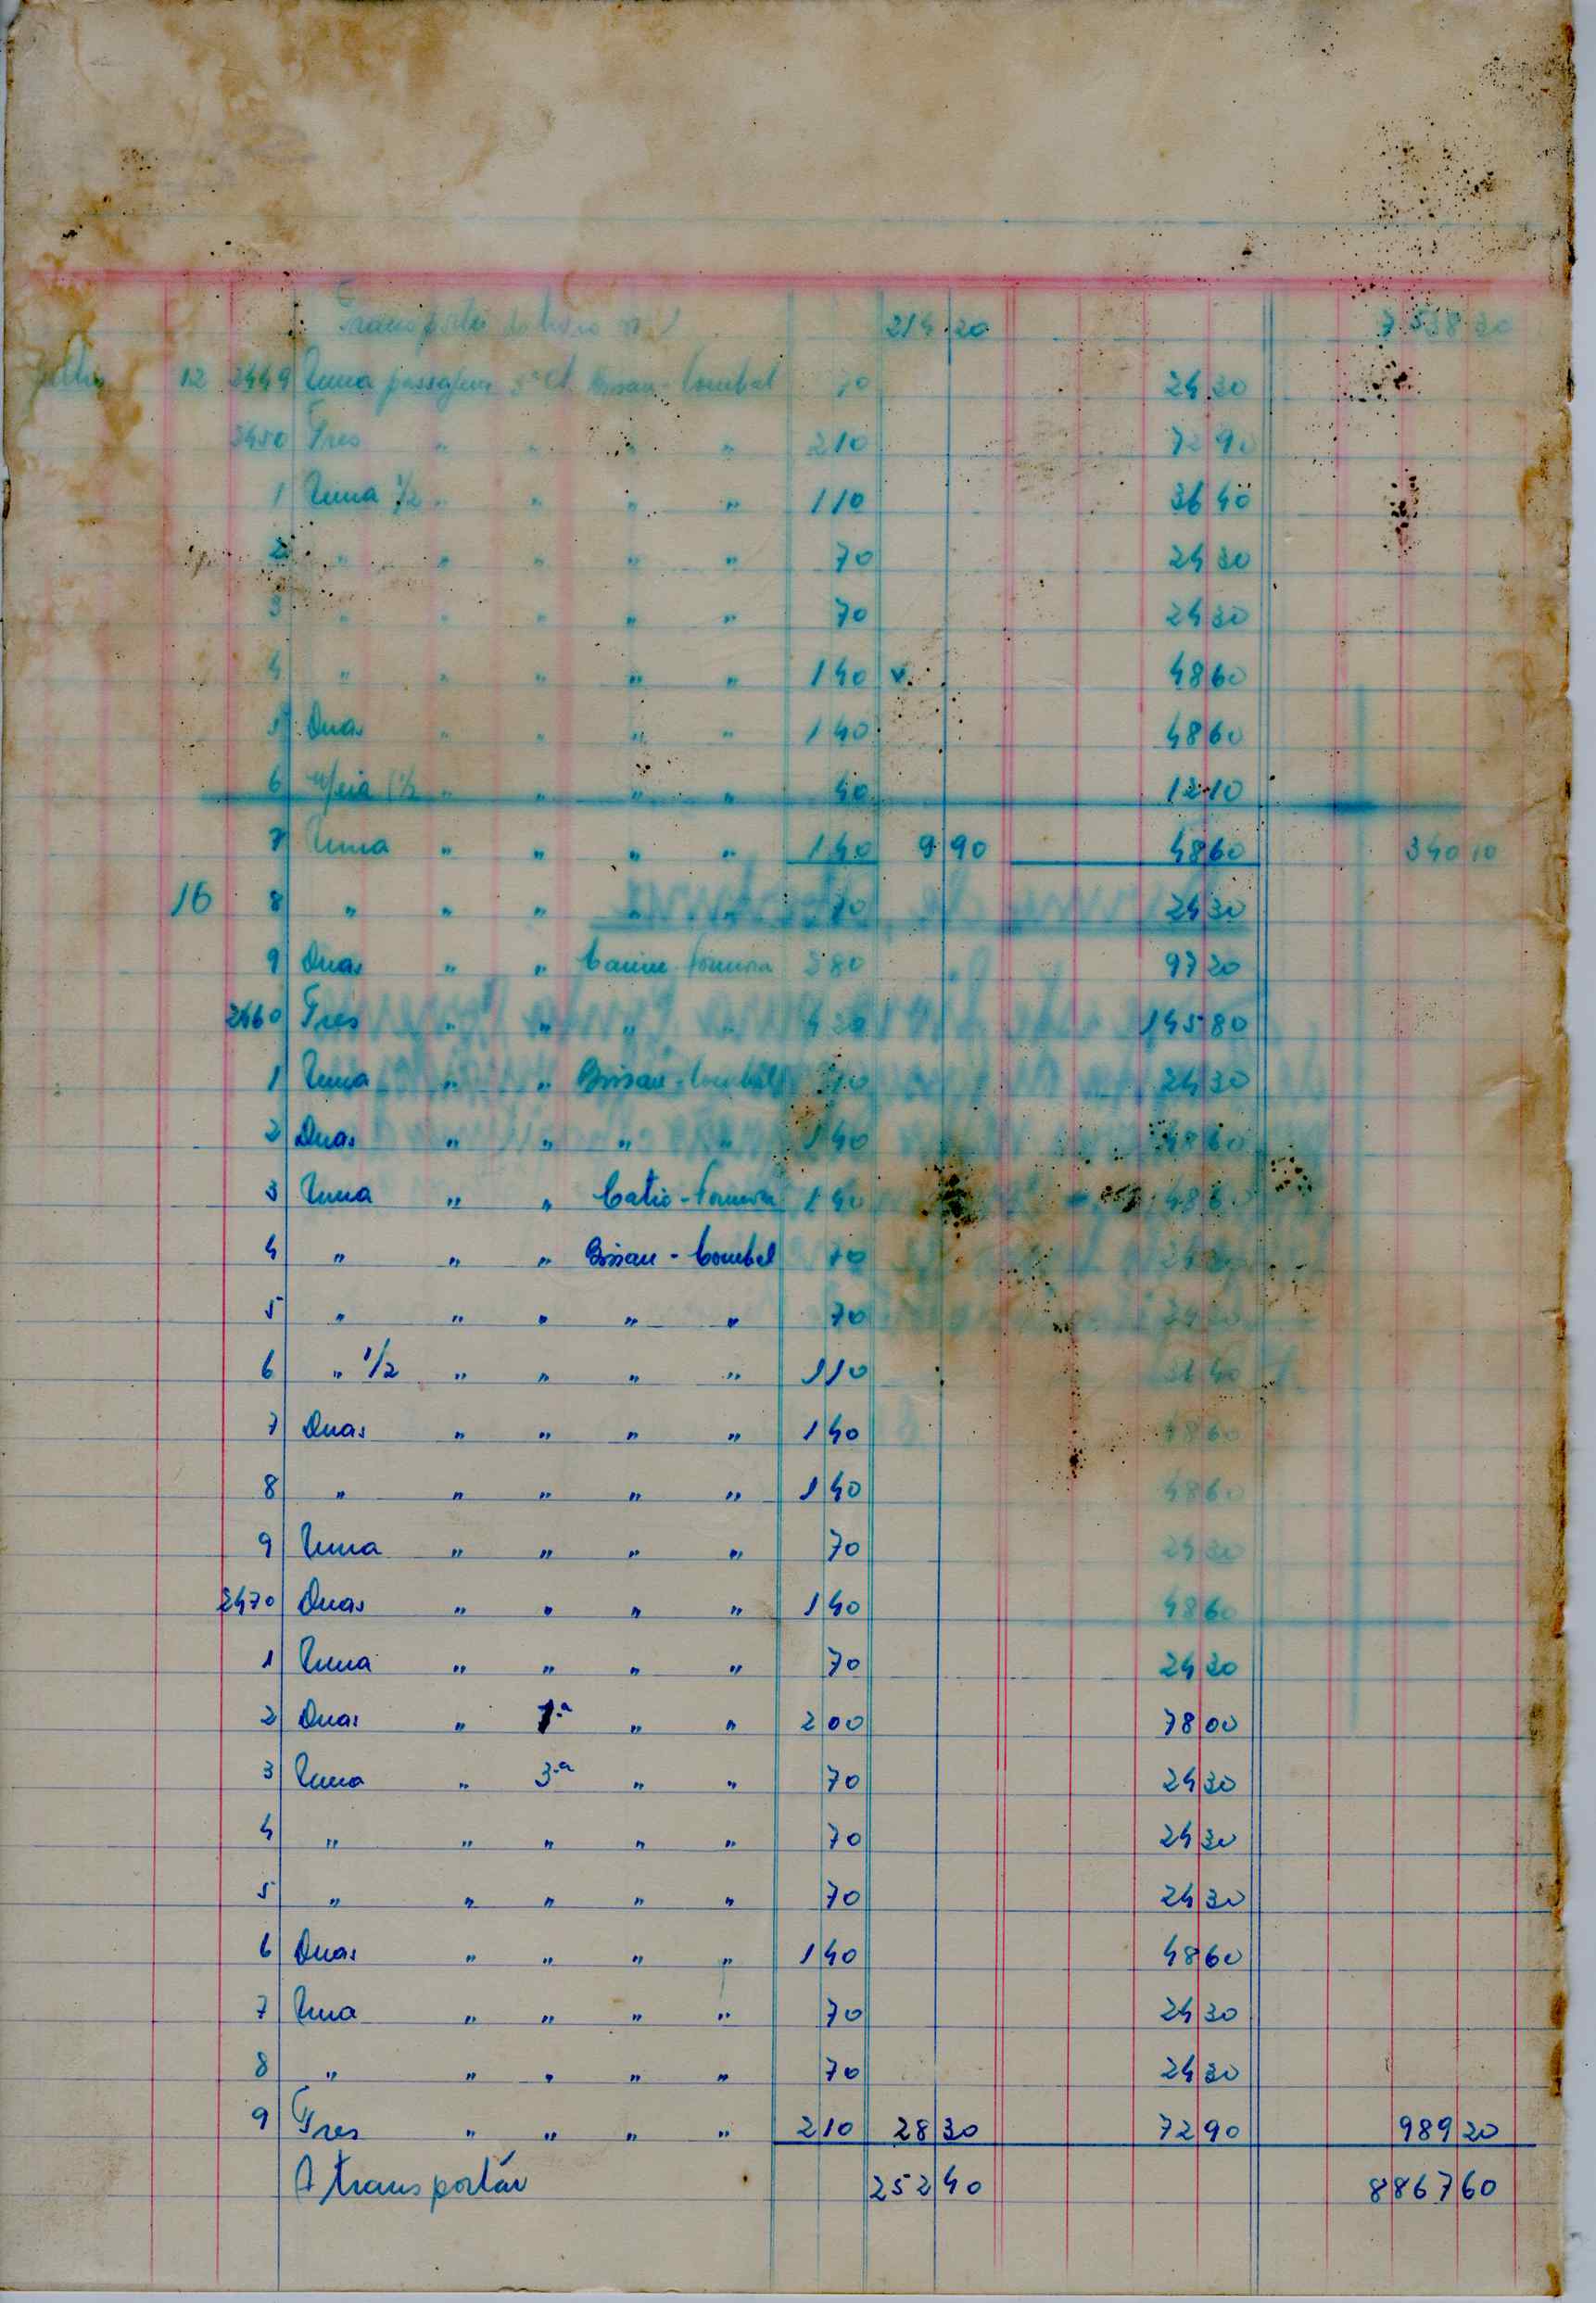 Transporte do livro nº 1 214 20 7 538 30
Julho 12 2449 Uma passagem 3ª cl. Bissau - Combel 70 24 30
2450 Tres " " " " 210 72 90
1 Uma 1/2 " " " " 110 36 40
2 " " " " " 70 24 30
3 " " " " " 70 24 30
4 " " " " " 140 v. 48 60
5 Duas " " " " 140 48 60
6 Meia (1/2 " " " " 40 12 10
7 Uma " " " " 140 9 90 48 60 340 10
16 8 " " " " " 70 24 30
9 Duas " " Cacine - Formosa 280 97 20
2460 Tres " " " " 420 145 80
1 Uma " " Bissau - Combel 70 24 30
2 Duas " " " " 140 48 60
3 Uma " " Catio - Formosa 140 48 60
4 " " " Bissau - Combel 70 24 30
5 " " " " " 70 24 30
6 " 1/2 " " " " 110 36 40
7 Duas " " " " 140 48 60
8 " " " " " 140 48 60
9 Uma " " " " 70 24 30
2470 Duas " " " " 140 48 60
1 Uma " " " " 70 24 30
2 Duas " 1ª " " 200 78 00
3 Uma " 3ª " " 70 24 30
4 " " " " " 70 24 30
5 " " " " " 70 24 30
6 Duas " " " " 140 48 60
7 Uma " " " " 70 24 30
8 " " " " " 70 24 30
9 Tres " " " " 210 28 30 72 90 989 20
A transportár 252 40 8867 60